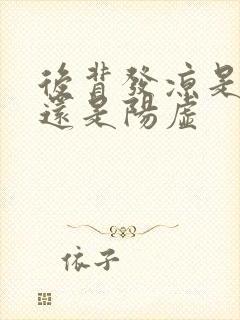 後背發凉是
還是陽虛
依子